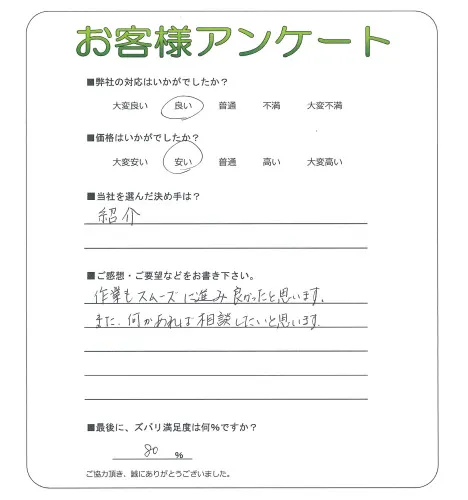 お客様アンケート
■弊社の対応はいかがでしたか?
大変良い 良い 普通 不満 大変不満
■価格はいかがでしたか?
大変安い 安い 普通 高い 大変高い
■当社を選んだ決め手は?
紹介
■ご感想・ご要望などをお書き下さい。
作業もスムーズに進み良かったと思います。
また、何かあれば相談したいと思います。
■最後に、ズバリ満足度は何%ですか?
80 %
ご協力頂き、誠にありがとうございました。